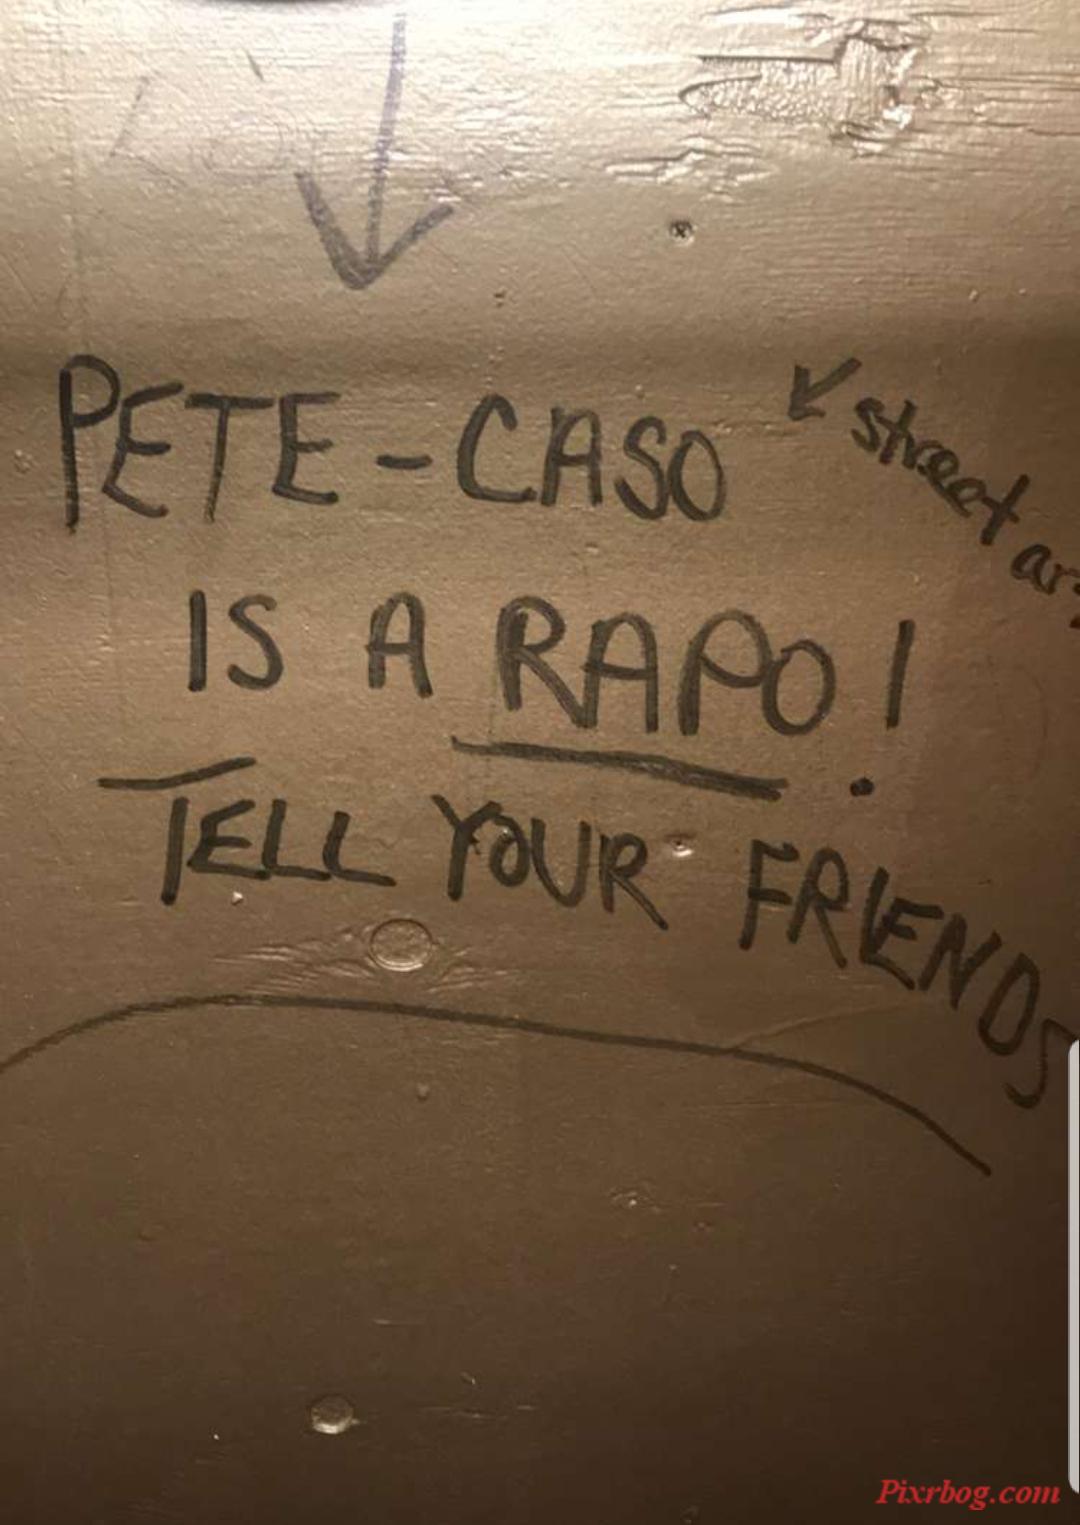 PETE-CASO
street
IS A RAPO!
TELL YOUR FRIENDS
Pixrbog.com